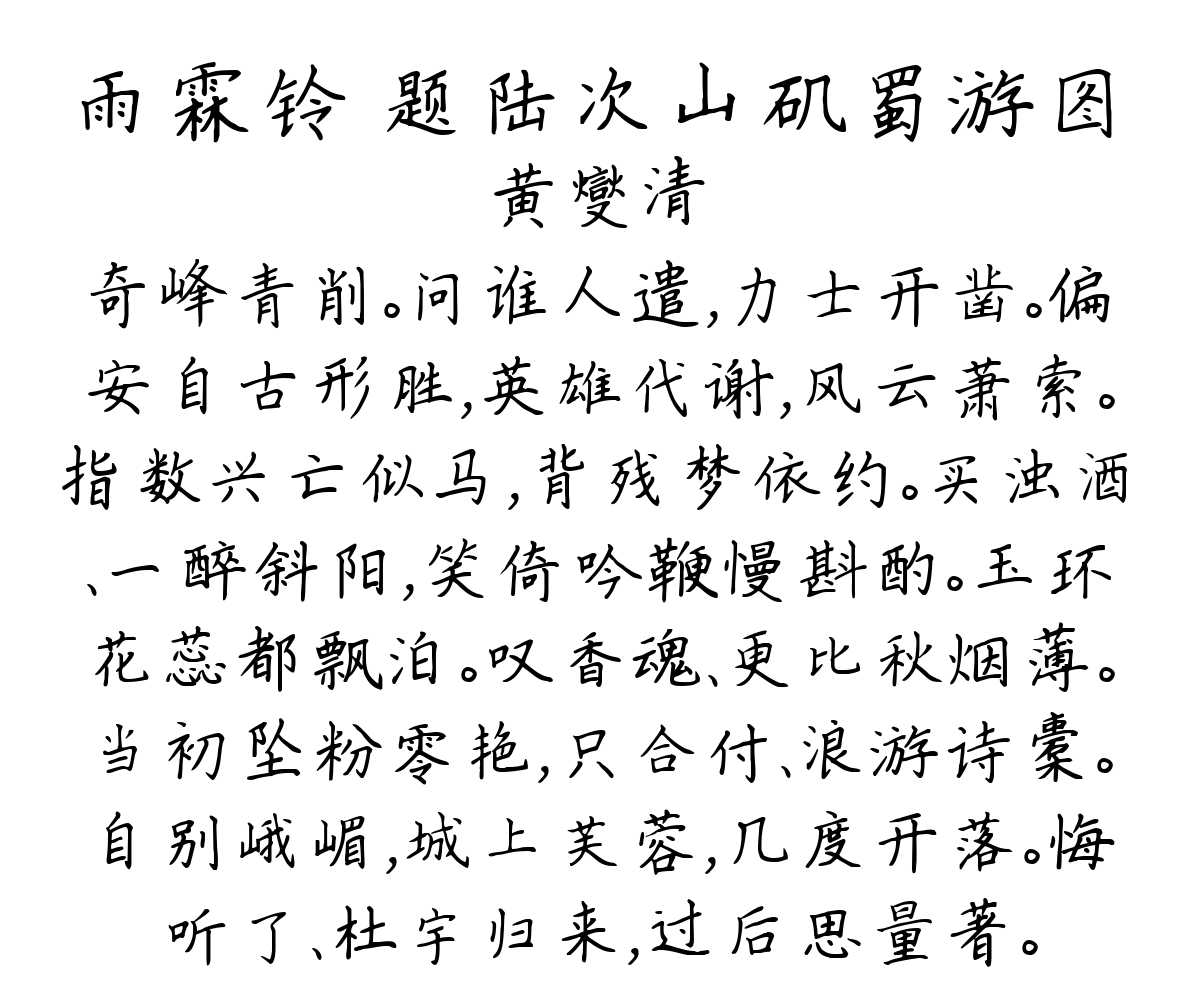 雨霖铃 题陆次山矶蜀游图
黄燮清
奇峰青削。问谁人遣,力士开凿。偏
安自古形胜,英雄代谢,风云萧索。
指数兴亡似马,背残梦依约。买浊酒
、一醉斜阳,笑倚吟鞭慢斟酌。玉环
花蕊都飘泊。叹香魂、更比秋烟薄。
当初坠粉零艳,只合付、浪游诗橐。
自别峨嵋,城上芙蓉,几度开落。悔
听了、杜宇归来,过后思量著。